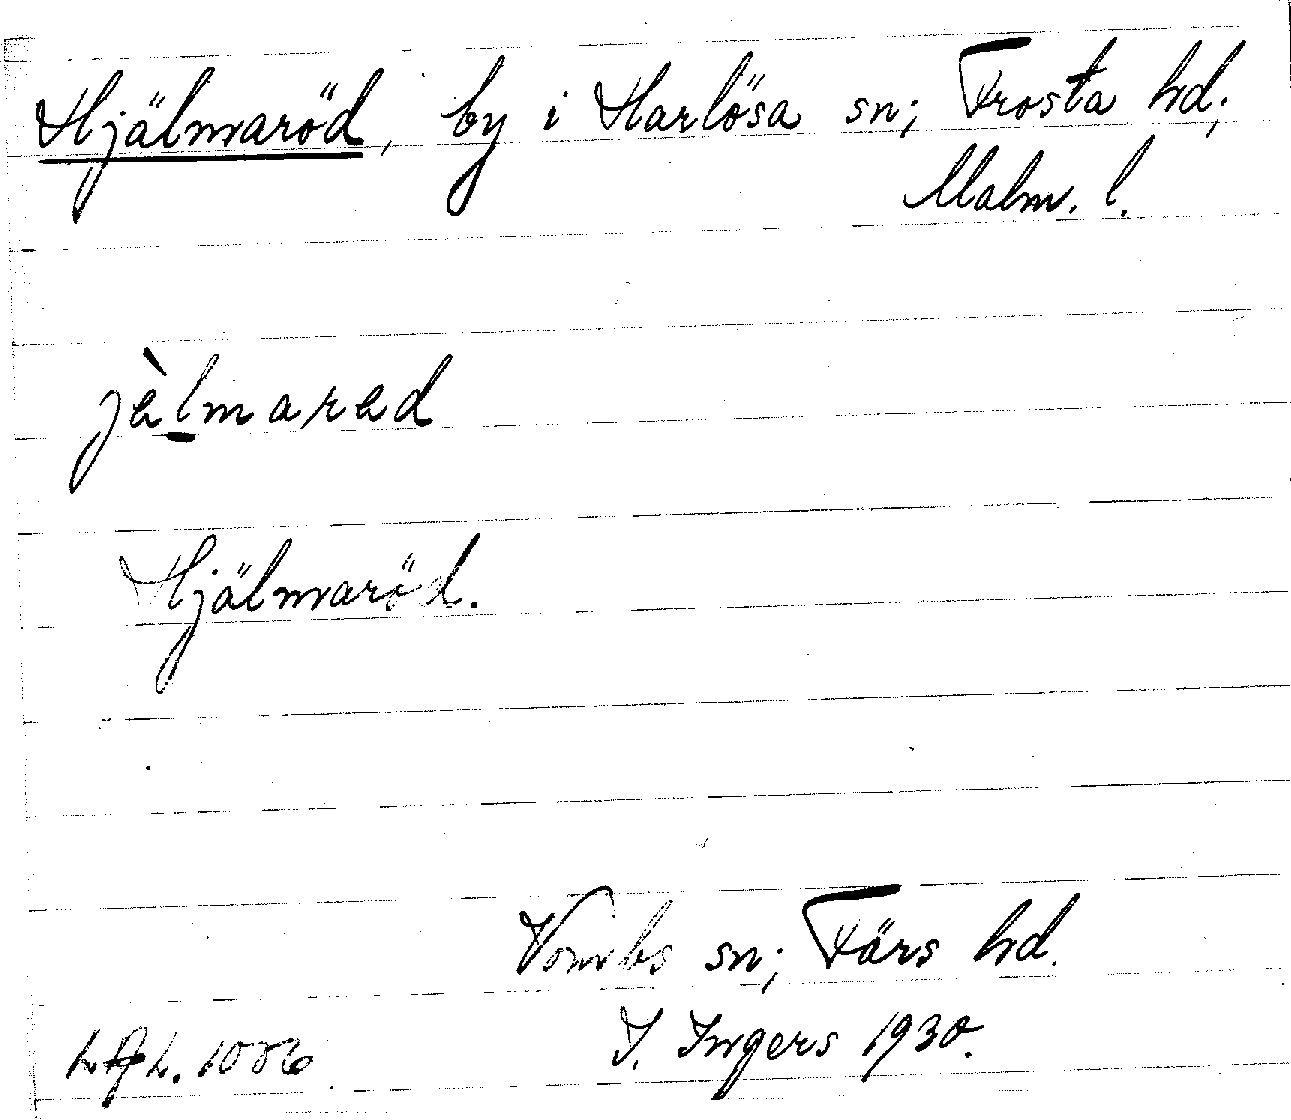 Hjälmaröd, by i Harlösa sn; Frosta hd;
Malm. l.
jèlmarad
Hjälmaröd.
Vombs sn; Färs hd.
I. Ingers 1930.